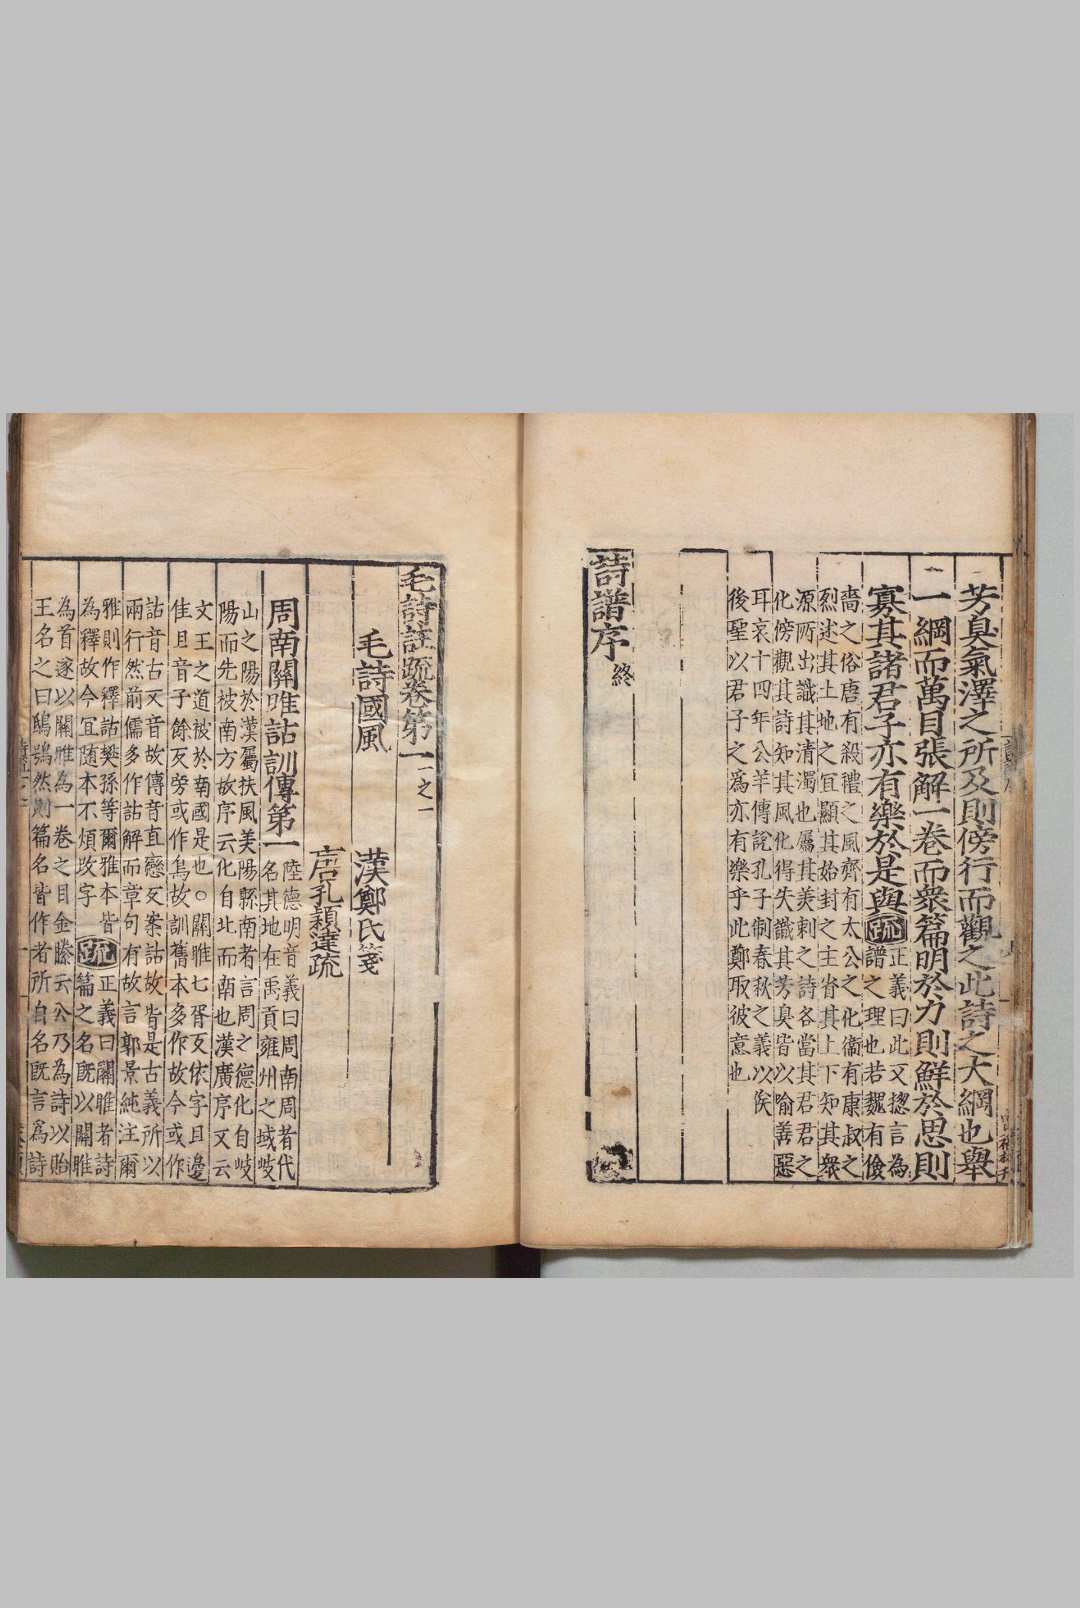 芳臭氣澤之所及則傍行而觀之此詩之大綱也舉
一綱而萬目張解一卷而衆篇明於力則鮮於思則
寡其諸君子亦有樂於是與疏
正義曰此又揔言為
譜之理也若魏有儉
嗇之俗唐有殺禮之風齊有太公之化衞有康叔之
烈述其土地之宜顯其始封之主省其上下知其衆
源所出識其清濁也屬其美刺之詩各當其君君之
化傍觀其詩知其風化得失識其芳臭皆以喻善惡
耳哀十四年公羊傳說孔子制春秋之義以俟
後聖以君子之爲亦有樂乎此鄭取彼意也
詩譜序終
毛詩註疏卷第一一之一
毛詩國風 漢鄭氏箋
唐孔穎達疏
周南關雎詁訓傳第一
陸德明音義曰周南周者代
名其地在禹貢雍州之域岐
山之陽於漢屬扶風美陽縣南者言周之德化自岐
陽而先被南方故序云化自北而南也漢廣序又云
文王之道被於南國是也○關雎七胥反依字且邊
隹且音子餘反旁或作鳥故訓舊本多作故今或作
詁音古又音故傳音直戀反案詁故皆是古義所以
兩行然前儒多作詁解而章句有故言郭景純注爾
雅則作釋詁樊孫等爾雅本皆
為釋故今宜随本不煩改字
疏
正義曰關雎者詩
篇之名既以關雎
為首遂以關雎為一卷之目金縢云公乃為詩以貽
王名之曰鴟鴞然則篇名皆作者所自名既言爲詩